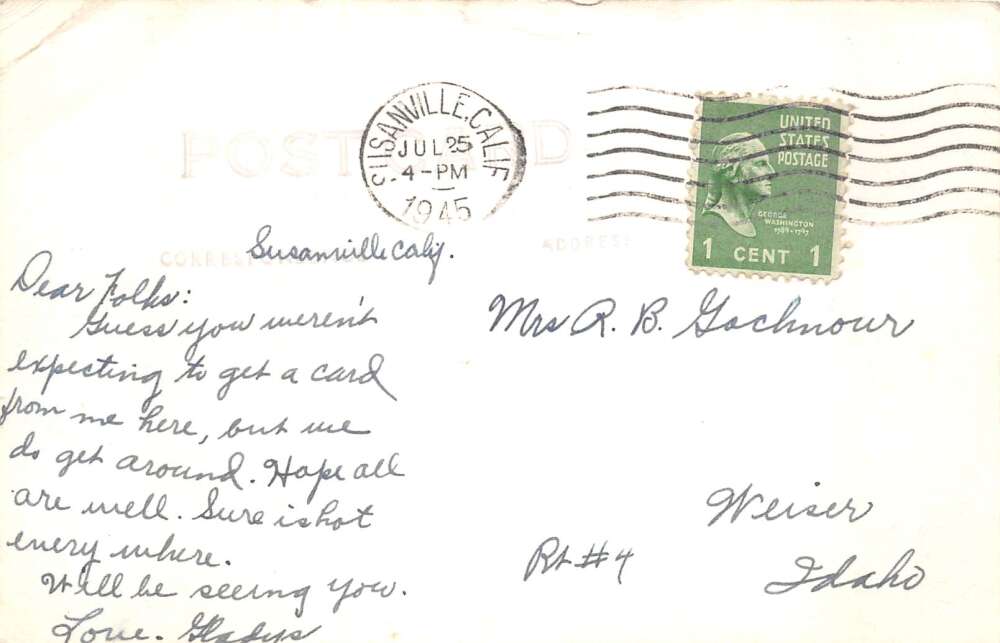 POST CARD
SUSANVILLE, CALIF.
JUL 25
4-PM
1945
UNITED
STATES
POSTAGE
GEORGE
WASHINGTON
1789-1797
1 CENT 1
CORRESPONDENCE
ADDRESS
Susanville Calif.
Dear Folks:
Guess you weren't
expecting to get a card
from me here, but we
do get around. Hope all
are well. Sure is hot
every where.
Will be seeing you.
Love. Gladys
Mrs R. B. Gochnour
Weiser
Rt #4
Idaho